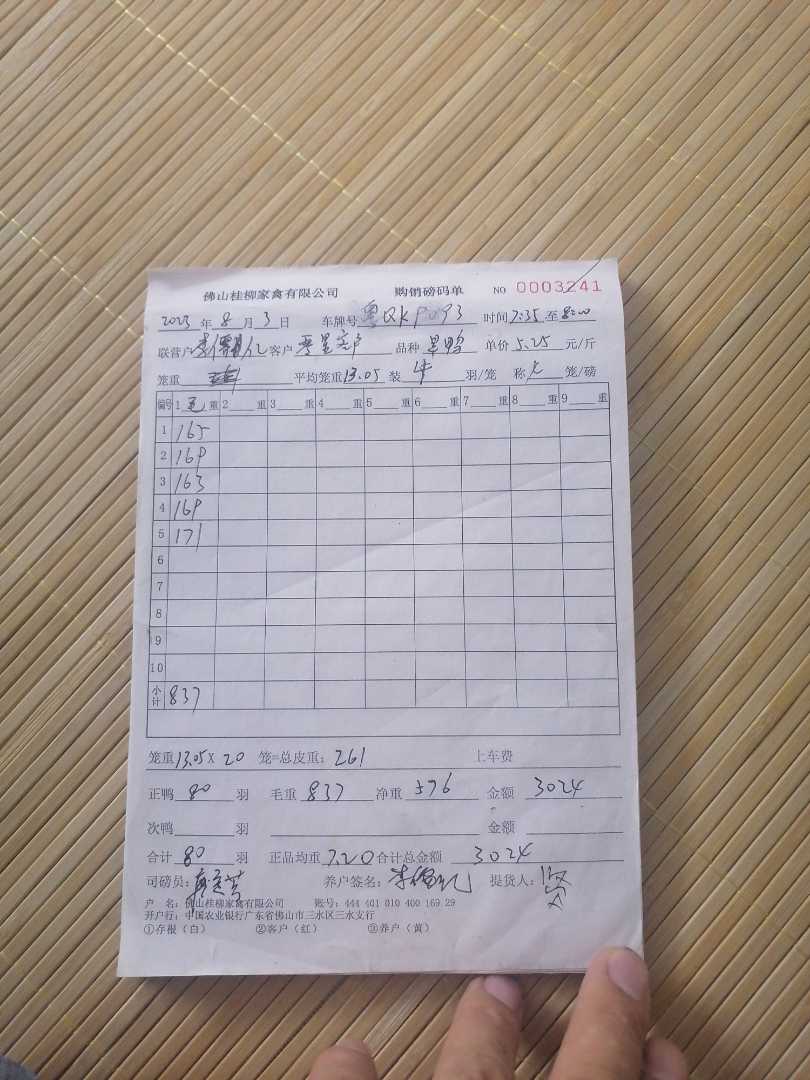 佛山桂柳家禽有限公司 购销磅码单 NO 0003241
2023年8月3日 车牌号 粤QKP093 时间7:35至8:00
联营户 客户 品种 单价 5.25 元/斤
笼重 平均笼重13.05 装 4 羽/笼 称 笼/磅
编号 1 毛 重 2 重 3 重 4 重 5 重 6 重 7 重 8 重 9 重
1 165
2 169
3 163
4 169
5 171
6
7
8
9
10
小计 837
笼重13.05X 20 笼=总皮重: 261 上车费
正鸭 80 羽 毛重 837 净重 576 金额 3024
次鸭 羽 金额
合计 80 羽 正品均重7.20合计总金额 3024
司磅员: 养户签名: 提货人:
户 名:佛山桂柳家禽有限公司 账号: 444 401 010 400 169 29
开户行: 中国农业银行广东省佛山市三水区三水支行
①存根(白) ②客户(红) ③养户(黄)